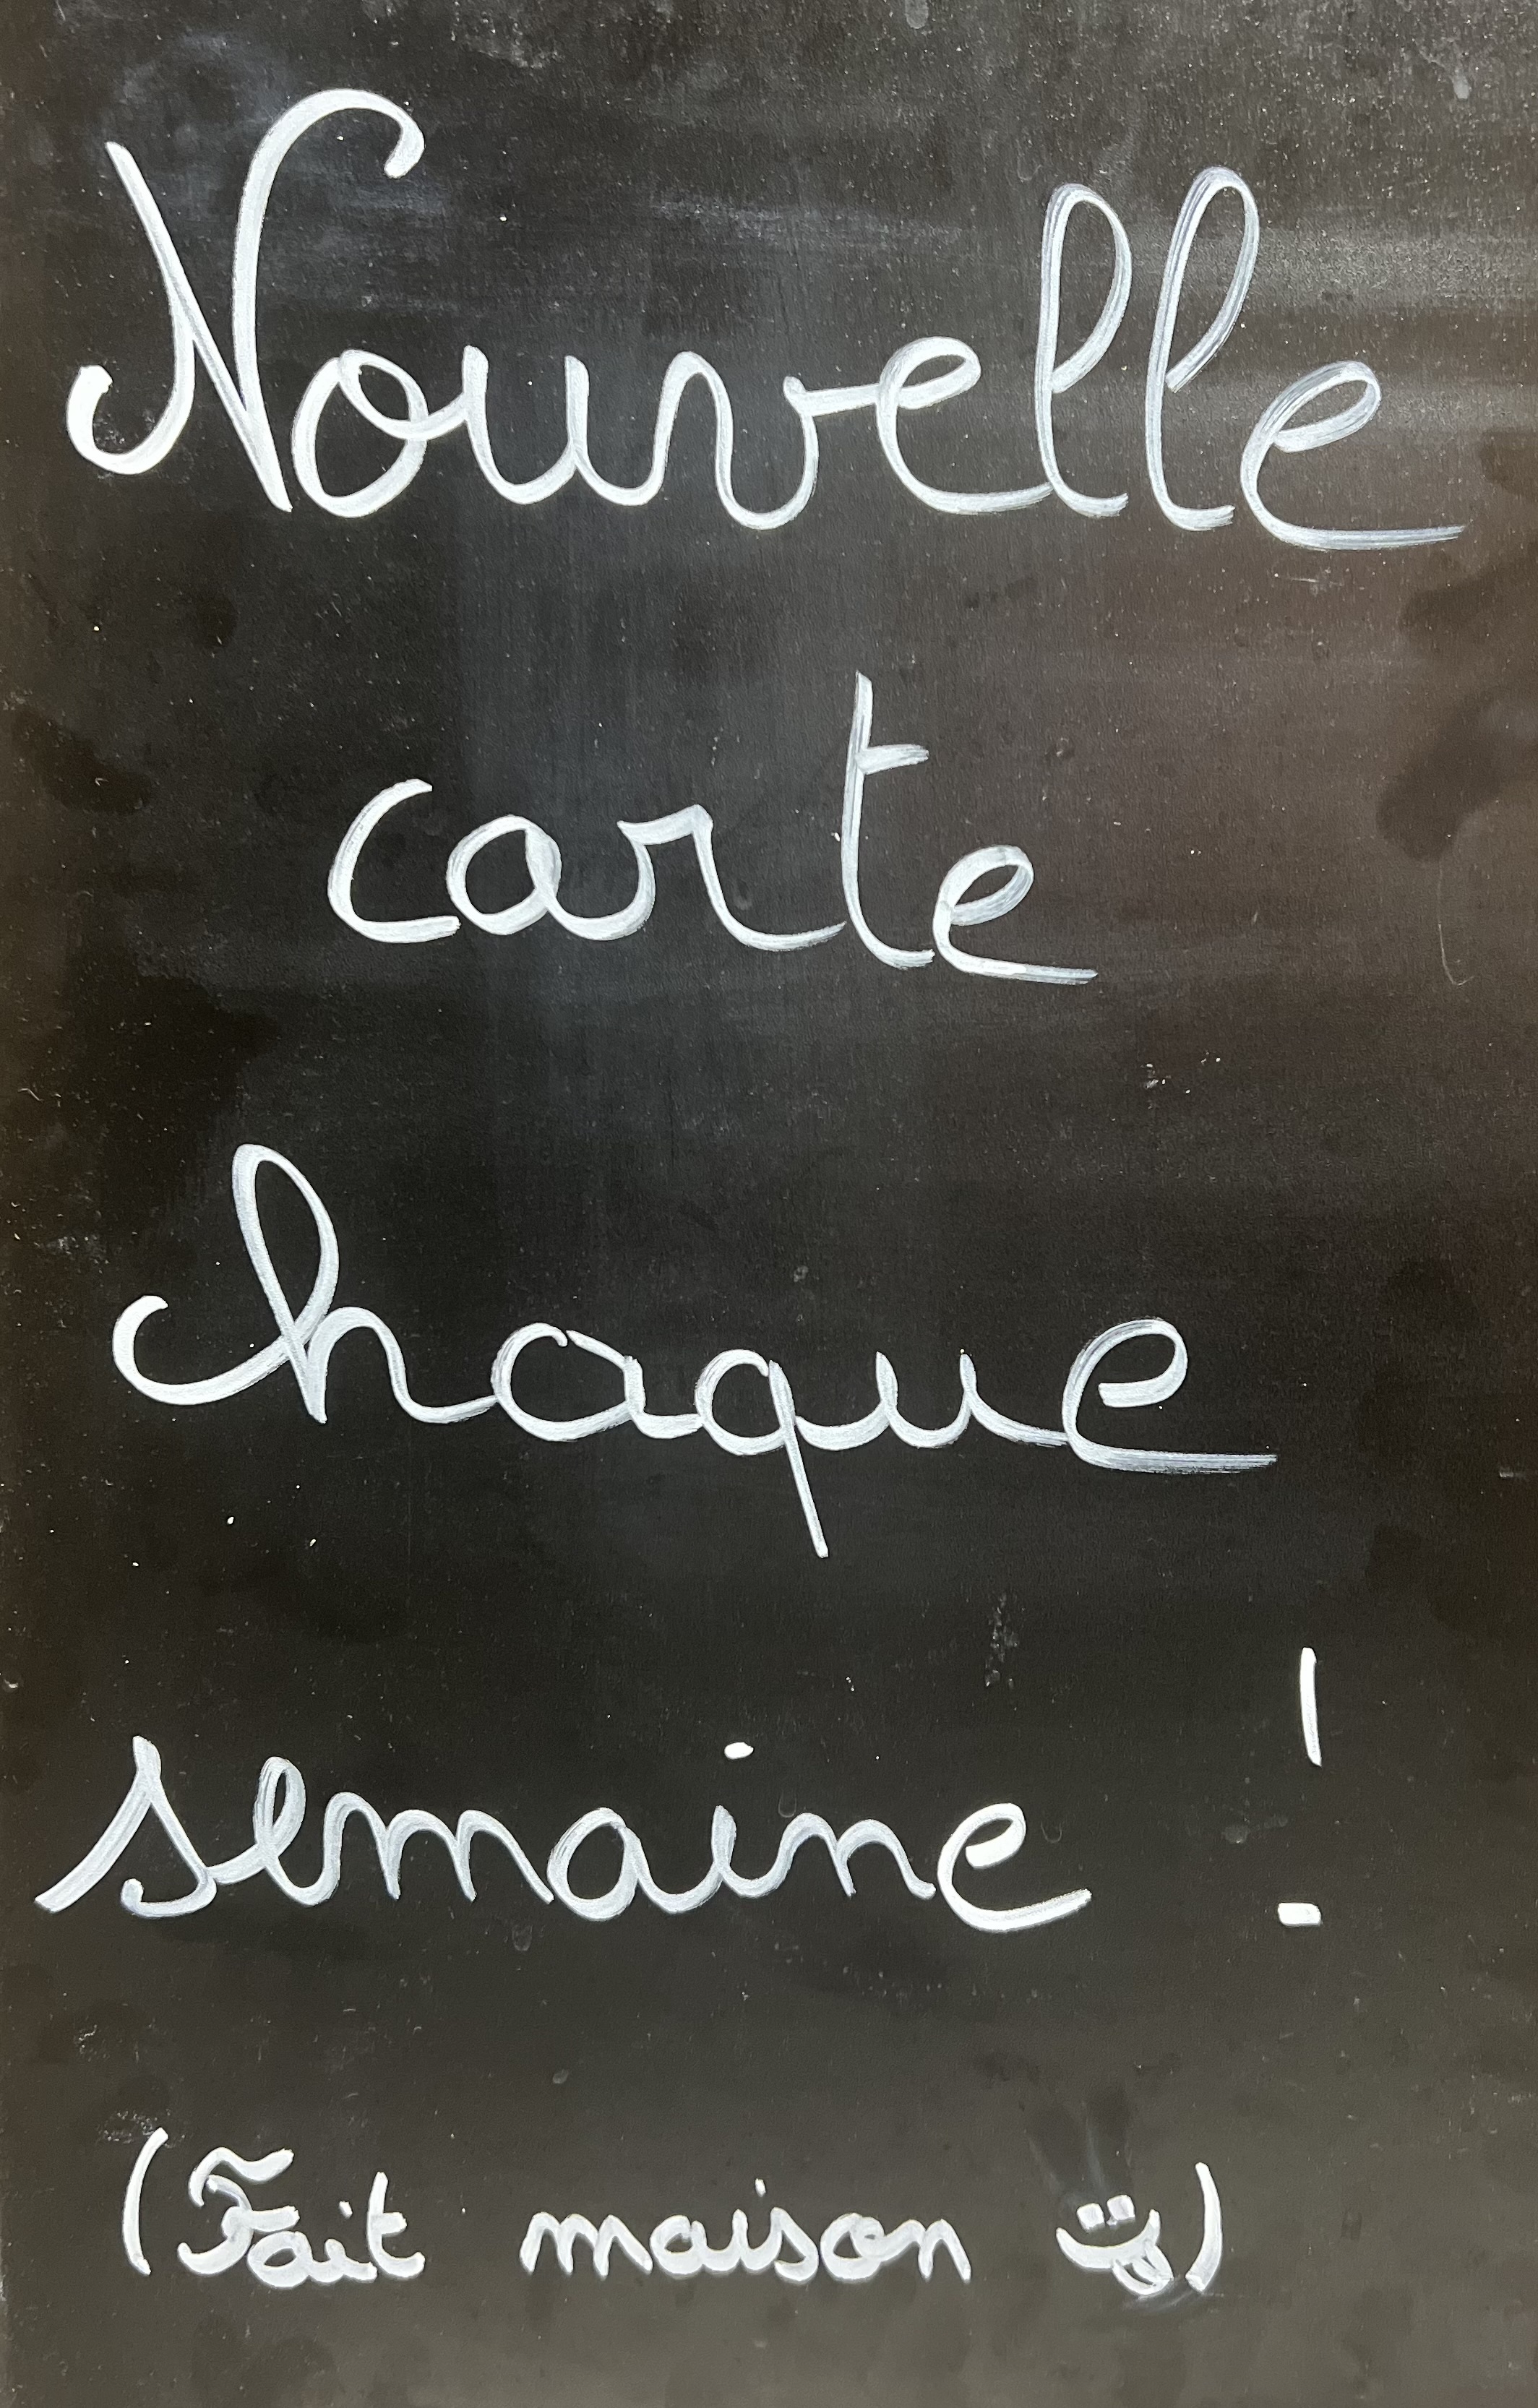 Nouvelle
carte
chaque
semaine !
(Fait maison 😋)